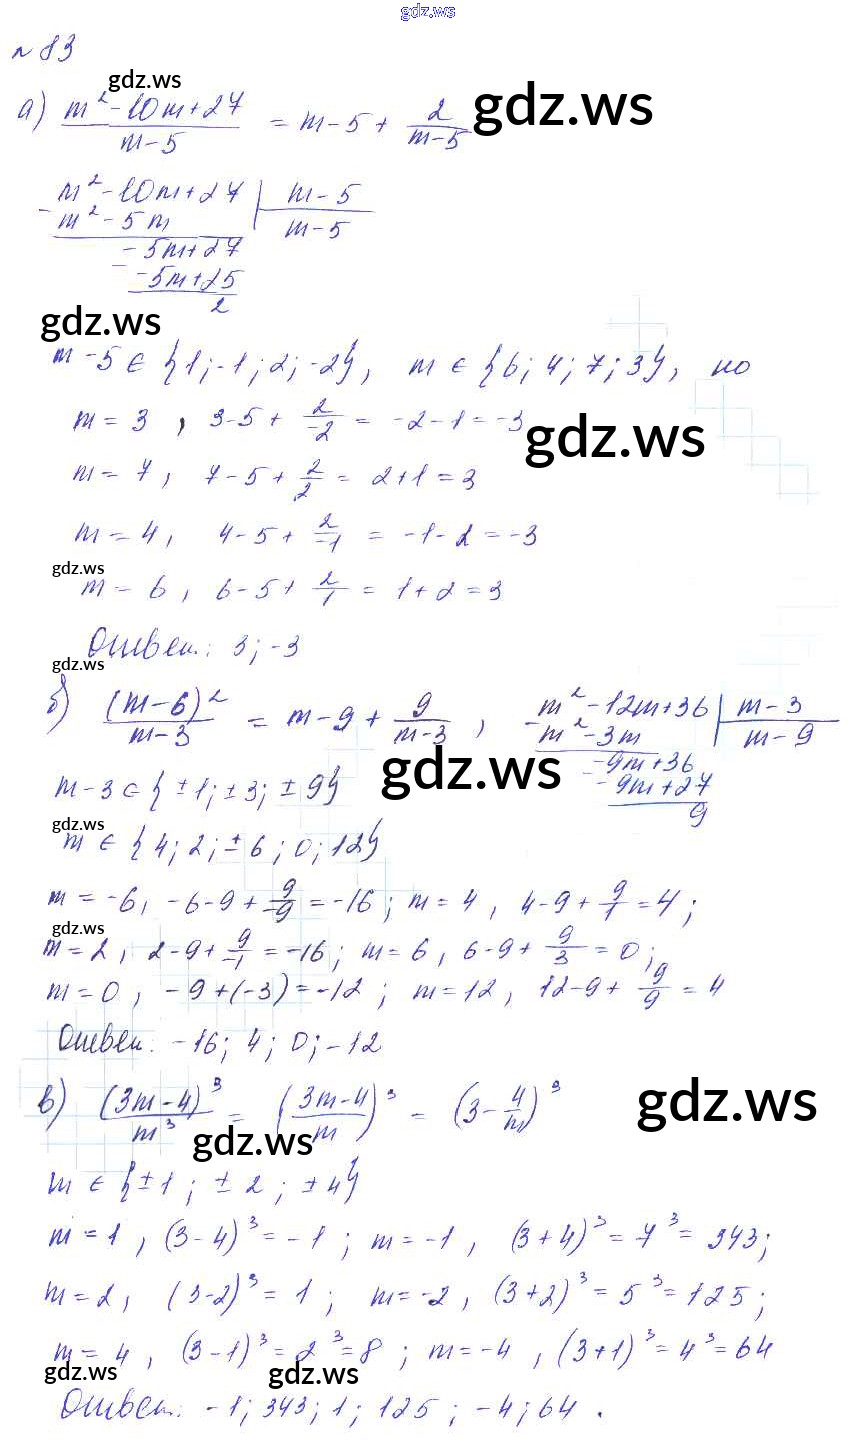 gdz.ws
№ 83
gdz.ws
а) (m² - 10m + 27)/(m - 5) = m - 5 + 2/(m - 5) gdz.ws
m² - 10m + 27 | m - 5
- m² - 5m | m - 5
- 5m + 27
- -5m + 25
2
gdz.ws
m - 5 ∈ {1; -1; 2; -2}, m ∈ {6; 4; 7; 3}, но
m = 3, 3 - 5 + 2/-2 = -2 - 1 = -3 gdz.ws
m = 7, 7 - 5 + 2/2 = 2 + 1 = 3
m = 4, 4 - 5 + 2/-1 = -1 - 2 = -3
gdz.ws
m = 6, 6 - 5 + 2/1 = 1 + 2 = 3
Ответ: 3; -3
gdz.ws
б) (m - 6)²/(m - 3) = m - 9 + 9/(m - 3),
m² - 12m + 36 | m - 3
- m² - 3m | m - 9
- 9m + 36
- - 9m + 27
9
gdz.ws
m - 3 ∈ {±1; ±3; ±9}
gdz.ws
m ∈ {4; 2; ±6; 0; 12}
m = -6, -6 - 9 + 9/-9 = -16; m = 4, 4 - 9 + 9/1 = 4;
gdz.ws
m = 2, 2 - 9 + 9/-1 = -16; m = 6, 6 - 9 + 9/3 = 0;
m = 0, -9 + (-3) = -12; m = 12, 12 - 9 + 9/9 = 4
Ответ: -16; 4; 0; -12
в) (3m - 4)³/m³ = ((3m - 4)/m)³ = (3 - 4/m)³ gdz.ws
gdz.ws
m ∈ {±1; ±2; ±4}
m = 1, (3 - 4)³ = -1; m = -1, (3 + 4)³ = 7³ = 343;
m = 2, (3 - 2)³ = 1; m = -2, (3 + 2)³ = 5³ = 125;
m = 4, (3 - 1)³ = 2³ = 8; m = -4, (3 + 1)³ = 4³ = 64
gdz.ws gdz.ws
Ответ: -1; 343; 1; 125; -4; 64.